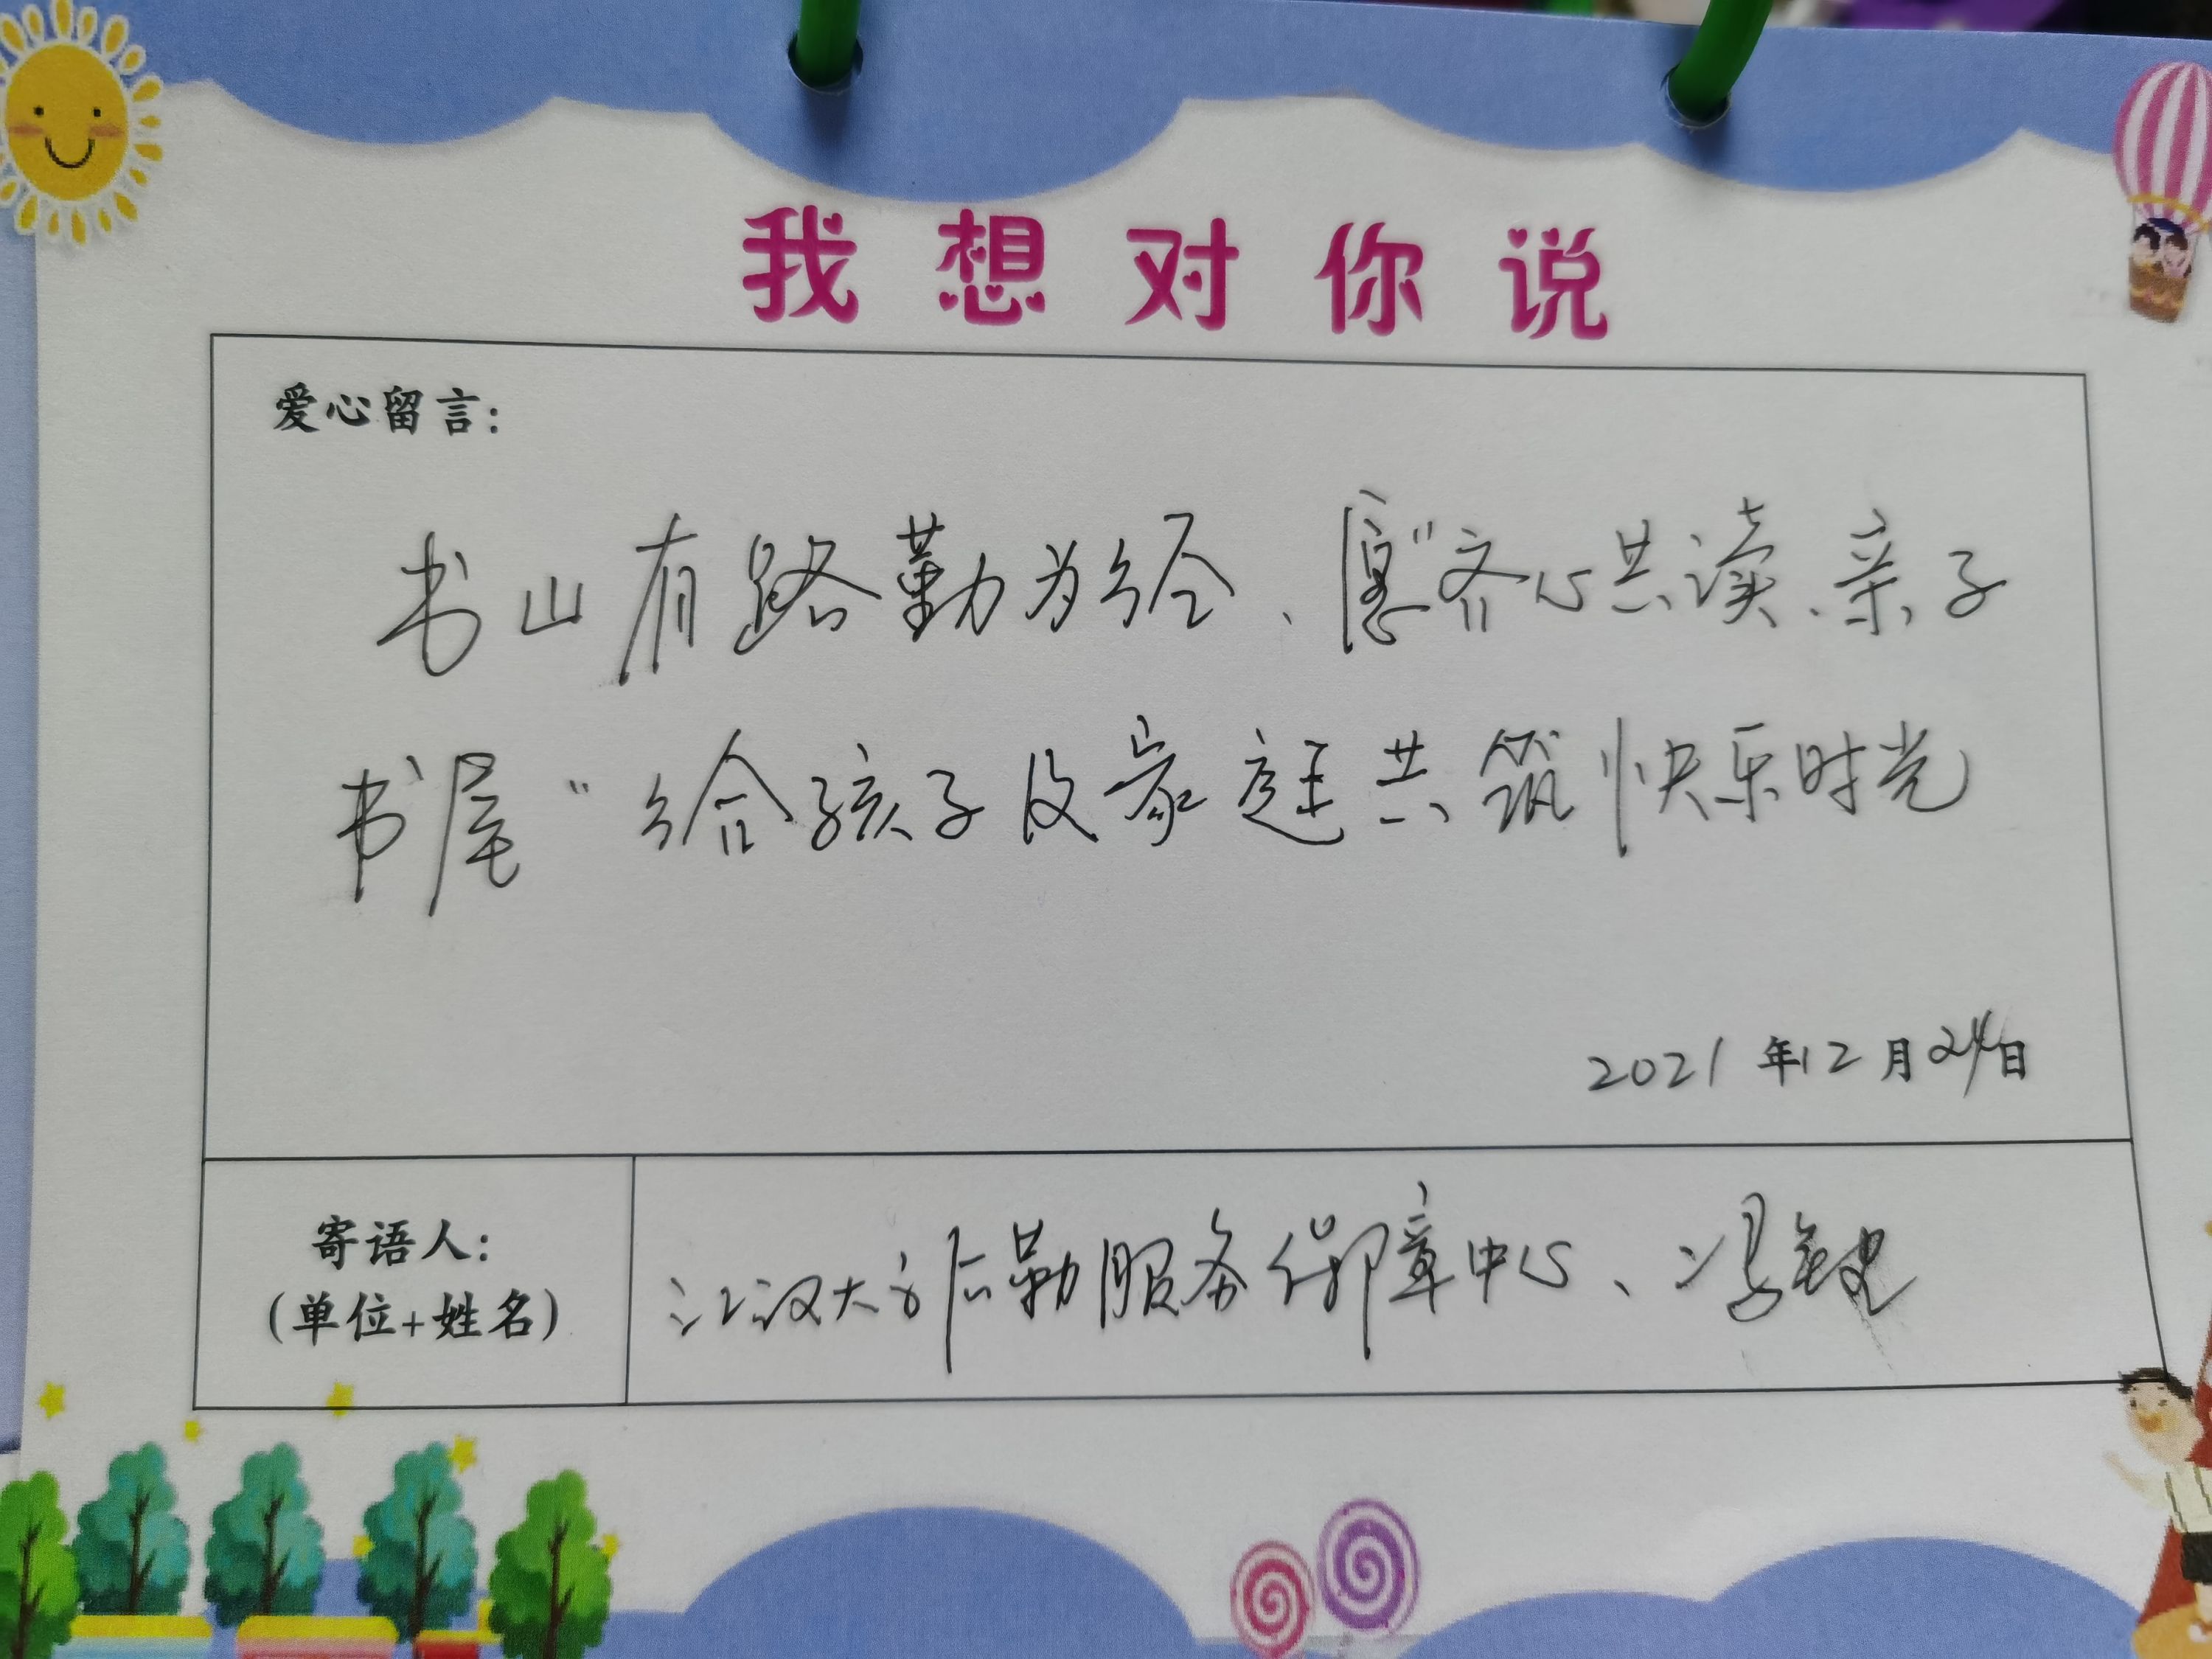 我想对你说
爱心留言:
书山有路勤为经、愿“齐心共读、亲子
书屋”给孩子及家庭共筑快乐时光
2021年12月24日
寄语人:
(单位+姓名)
江汉大学后勤服务保障中心、冯